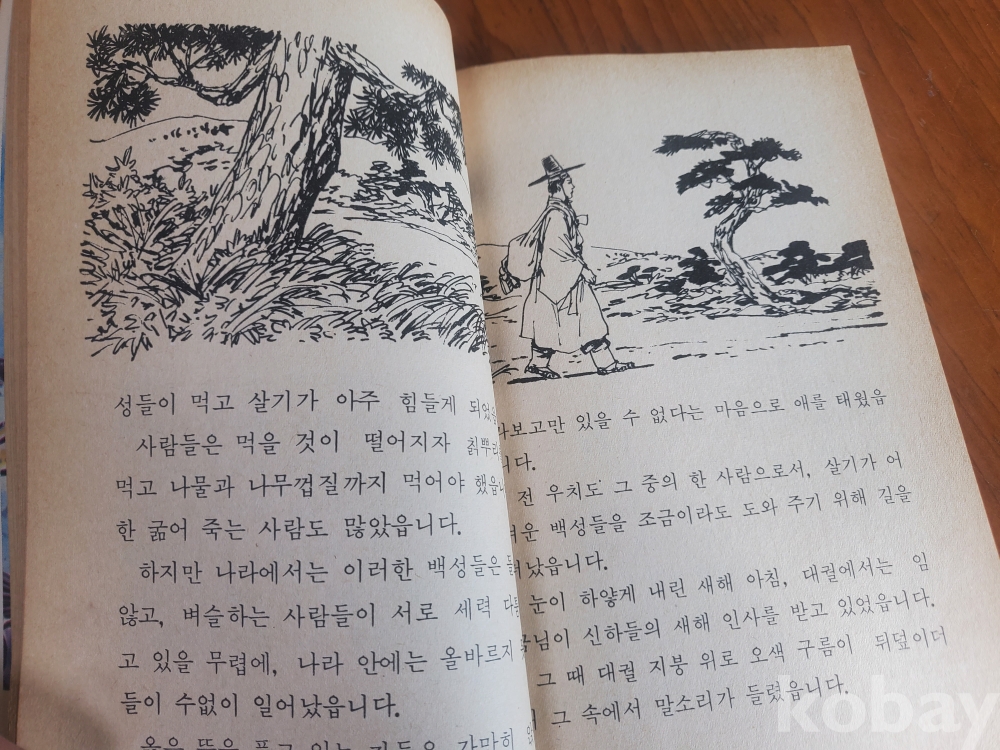 성들이 먹고 살기가 아주 힘들게
사람들은 먹을 것이 떨어지자
먹고 나물과 나무껍질까지 먹어야
한 굶어 죽는 사람도 많았읍니다.
하지만 나라에서는 이러한 백성들은
않고, 벼슬하는 사람들이 서로 세력
고 있을 무렵에, 나라 안에는
들이 수없이 일어났읍니다.
있을 수 없다는 마음으로 애를 태웠읍
니다.
전 우치도 그 중의 한 사람으로서, 살기가 어
백성들을 조금이라도 도와 주기 위해 길을
났읍니다.
눈이 하얗게 내린 새해 아침, 대궐에서는 임
신하들의 새해 인사를 받고 있었읍니다.
그 때 대궐 지붕 위로 오색 구름이 뒤덮이더
그 속에서 말소리가 들렸읍니다.
kobay